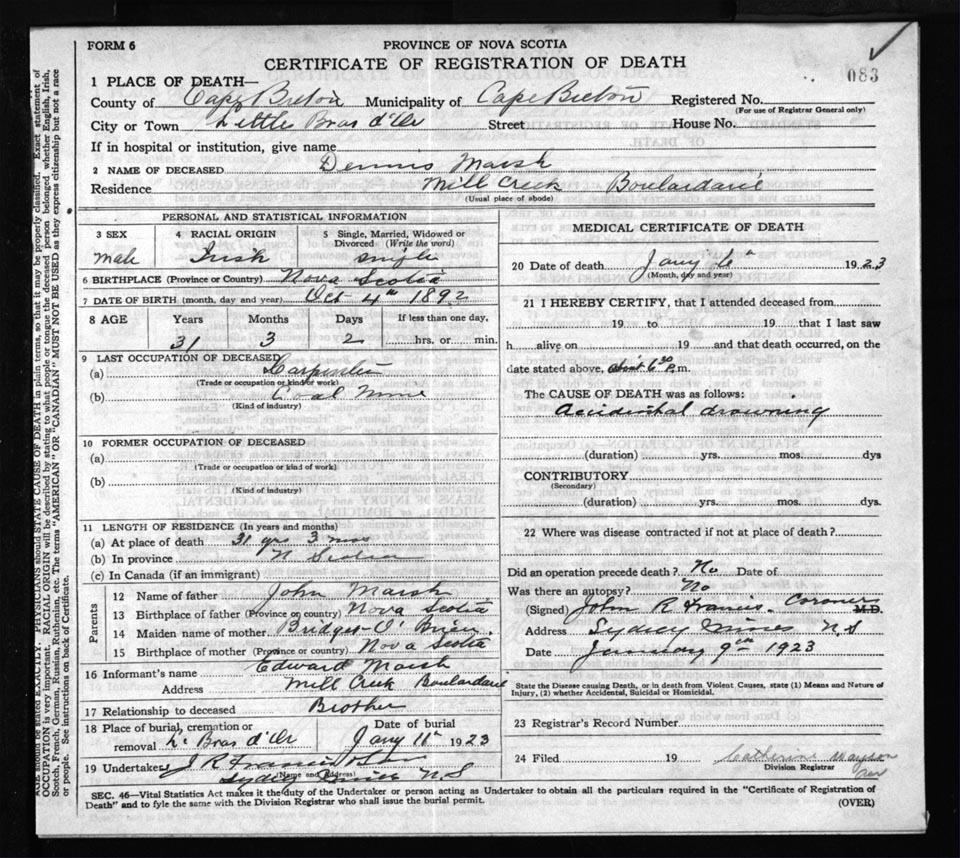 FORM 6
PROVINCE OF NOVA SCOTIA
CERTIFICATE OF REGISTRATION OF DEATH
083
1 PLACE OF DEATH—
County of Cape Breton Municipality of Cape Breton Registered No.
(For use of Registrar General only)
City or Town Little Bras d'Or Street House No.
If in hospital or institution, give name
2 NAME OF DECEASED Dennis Marsh
Residence Mill Creek Boulardarie
(Usual place of abode)
PERSONAL AND STATISTICAL INFORMATION
3 SEX
male
4 RACIAL ORIGIN
Irish
5 Single, Married, Widowed or Divorced (Write the word)
single
6 BIRTHPLACE (Province or Country) Nova Scotia
7 DATE OF BIRTH (month, day and year) Oct 4th 1892
8 AGE Years Months Days If less than one day,
31 3 2 hrs. or min.
9 LAST OCCUPATION OF DECEASED
(a) Carpenter
(Trade or occupation or kind of work)
(b) Coal Mine
(Kind of industry)
10 FORMER OCCUPATION OF DECEASED
(a)
(Trade or occupation or kind of work)
(b)
(Kind of industry)
11 LENGTH OF RESIDENCE (In years and months)
(a) At place of death 31 yrs 3 mos
(b) In province N Scotia
(c) In Canada (if an immigrant)
Parents
12 Name of father John Marsh
13 Birthplace of father (Province or country) Nova Scotia
14 Maiden name of mother Bridget O'Brien.
15 Birthplace of mother (Province or country) Nova Scotia
16 Informant's name Edward Marsh
Address Mill Creek Boulardarie
17 Relationship to deceased Brother
18 Place of burial, cremation or Date of burial
removal L. Bras d'Or Jany 11th 1923
19 Undertaker J R Francis
(Name and Address)
Sydney Mines N.S
MEDICAL CERTIFICATE OF DEATH
20 Date of death Jany 6th 1923
(Month, day and year)
21 I HEREBY CERTIFY, that I attended deceased from
19 to 19 that I last saw
h alive on 19 and that death occurred, on the
date stated above, 6 30 P.m.
The CAUSE OF DEATH was as follows:
Accidental drowning
(duration) yrs. mos. dys
CONTRIBUTORY
(Secondary)
(duration) yrs. mos. dys.
22 Where was disease contracted if not at place of death?
Did an operation precede death? No Date of
Was there an autopsy? No
(Signed) John R Francis. Coroner M.D.
Address Sydney Mines N.S
Date January 9th 1923
State the Disease causing Death, or in death from Violent Causes, state (1) Means and Nature of Injury, (2) whether Accidental, Suicidal or Homicidal.
23 Registrar's Record Number
24 Filed 19 Catherine
Division Registrar
SEC. 46—Vital Statistics Act makes it the duty of the Undertaker or person acting as Undertaker to obtain all the particulars required in the "Certificate of Registration of
Death" and to fyle the same with the Division Registrar who shall issue the burial permit.
(OVER)